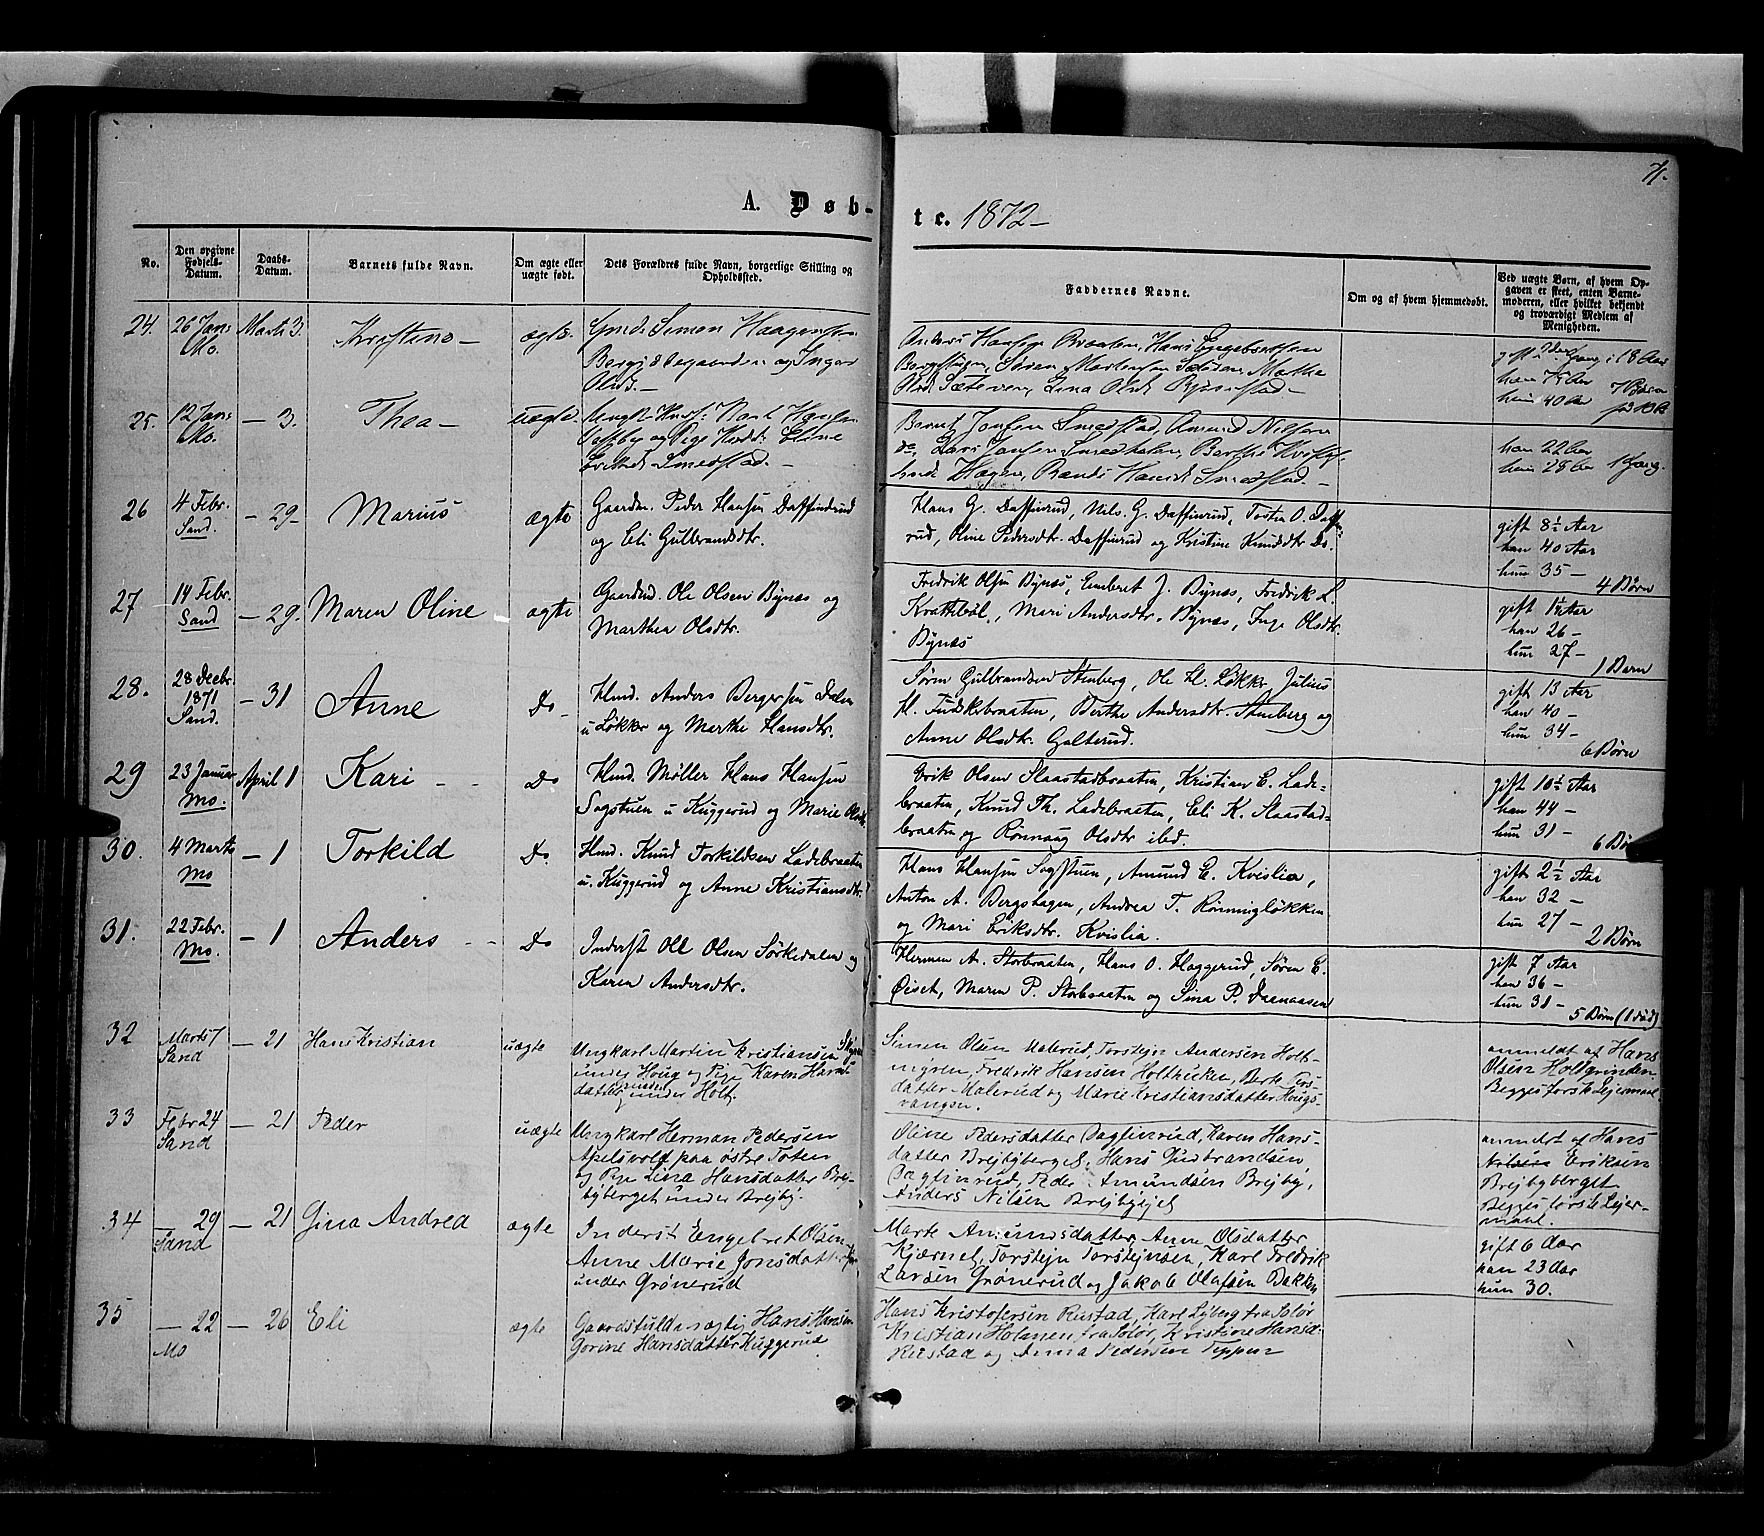 71.
A. Døb-
te. 1872-
No.
Den opgivne Fødsels-Datum.
Daabs-Datum.
Barnets fulde Navn.
Om ægte eller uægte født.
Dets Forældres fulde Navn, borgerlige Stilling og Opholdssted.
Faddernes Navne.
Om og af hvem hjemmedøbt.
Ved uægte Børn, af hvem Op-
gaven er skeet, enten Barne-
moderen, eller hvilket bekjendt
og troværdigt Medlem af
Menigheden.
24. 26 Jan: Mo. Marts 3. ægte.
Simen Haagensen
og Inger
Olsd. -
Anders Hansen Braaten, Hans Engebretsen
Søren Martensen Mathe
Lina Olsd.
han
hun 40 Aar
7 Børn
25. 12 Jan: Mo. - 3. Thea - uægte.
Hansen
og Pige Eline
Smedstad. -
Bernt Jonsen Smedstad, Amund Nilsen
do, Lars Jonsen Berthe
Hagen, Randi Hansd. Smedstad. -
han 22 Aar
hun 25 Aar 1 Gang.
26 4 Febr. Sand. - 29 - Marius ægte
Gaardm. Peder Hansen Daffinrud
og Eli Gulbrandsdtr.
Hans G. Daffinrud, Nils G. Daffinrud, Tosten O. Daffin-
rud, Oline Pedersdtr. Daffinrud og Kristine Knudsdtr Do.
gift 8½ Aar
han 40 Aar
hun 35 -
4 Børn
27. 14 Febr. Sand - 29. Maren Oline ægte
Gaardmd. Ole Olsen Bynæs og
Marthea Olsdtr.
Fredrik Olsen Bynæs, Embret J. Bynæs, Fredrik L.
Krattebøl, Mari Andersdtr. Bynæs, Inge Olsdtr.
Bynæs
gift 1½ Aar
han 26 -
hun 27 -
1 Barn
28. 28 Decbr. 1871 Sand. - 31 Anne Do -
Hmd. Anders Bergersen Dalen
u Løkker og Marthe Hansdtr.
Søren Gulbrandsen Stenberg, Ole H. Løkke Julius
H. Fuskebraaten, Berthe Andersdtr. Stenberg og
Anne Olsdtr. Galterud.
gift 13 Aar
han 40 -
hun 34 -
6 Børn
29 23 Januar Mo. April 1 Kari - - Do
Hmd. Møller Hans Hansen
Sagstuen u Kuggerud og Marie Olsdtr.
Erik Olsen Slaastadbraaten, Kristian E. Lade-
braaten, Knud Th. Ladebraaten, Eli K. Slaastad-
braaten og Rønnaug Olsdtr ibd.
gift 10½ Aar
han 44 -
hun 31 -
6 Børn
30. 4 Marts Mo - 1 Torkild Do
Hmd. Knud Torkildsen Ladebraaten
u. Kuggerud og Anne Kristiansdtr.
Hans Hansen Sagstuen, Amund E. Kvislia,
Anton A. Bergshagen, Andrea T. Rønningløkken
og Mari Eriksdtr. Kvislia.
gift 2½ Aar
han 32 -
hun 27 -
2 Børn
31. 22 Febr. Mo. - 1 Anders - - Do
Inderst Ole Olsen Sørkedalen og
Karen Andersdtr.
Herman A. Storbraaten, Hans O. Haggerud, Søren E.
Øiset, Maren P. Storbraaten og Sina P. Damaasen
gift 7 Aar
han 36 -
hun 31 -
5 Børn (1 død)
32 Marts 7 Sand - 21 Hans Kristian uægte
Ungkarl Martin Kristiansen
under Houg og Pige Karen Hans-
datter under Holt.
Simen Olsen Malerud, Torstejn Andersen Holt-
engren, Fredrik Hansen Berte Tors-
datter Malerud og Marie Kristiansdatter Hougs-
vangen.
anmeldt af Hans
Olsen Holtgrinden
Begges første Leiermaal
33 Febr 24 Sand - 21 Peder uægte
Ungkarl Herman Pedersen
Apelsvold paa østre Toten
og Pige Lina Hansdatter Brej-
byberget under Brejby.
Oline Pedersdatter Dagfinrud, Karen Hans-
datter Brejbyberget, Hans Gudbrandsen
Dagfinrud, Peder Amundsen Brejby,
Anders Nilsen Brejbyejet
anmeldt af Hans
Nilsen Eriksen
Brejbyberget
Begges første Leier-
maal.
34 - 29 Sand - 21 Gina Andrea ægte
Inderst Engebret Olsen
Anne Marie Jonsdatter
under Grønerud
Marte Amundsdatter, Anne Olsdatter
Kjærnet, Torstejn Torstejnsen, Karl Fredrik
Larsen Grønerud og Jakob Olafsen Bakken
gift 6 Aar
han 23 Aar
hun 30.
35 - 22 Mo - 26 Eli ægte
Gaardsfuldmægtig Hans Hansen
Gorine Hansdatter Kuggerud
Hans Kristofersen Rustad, Karl Lyberg fra Solør
Kristian Holmen fra Solør, Kristine Hansd.
Rustad og Anna Pedersen Teppen